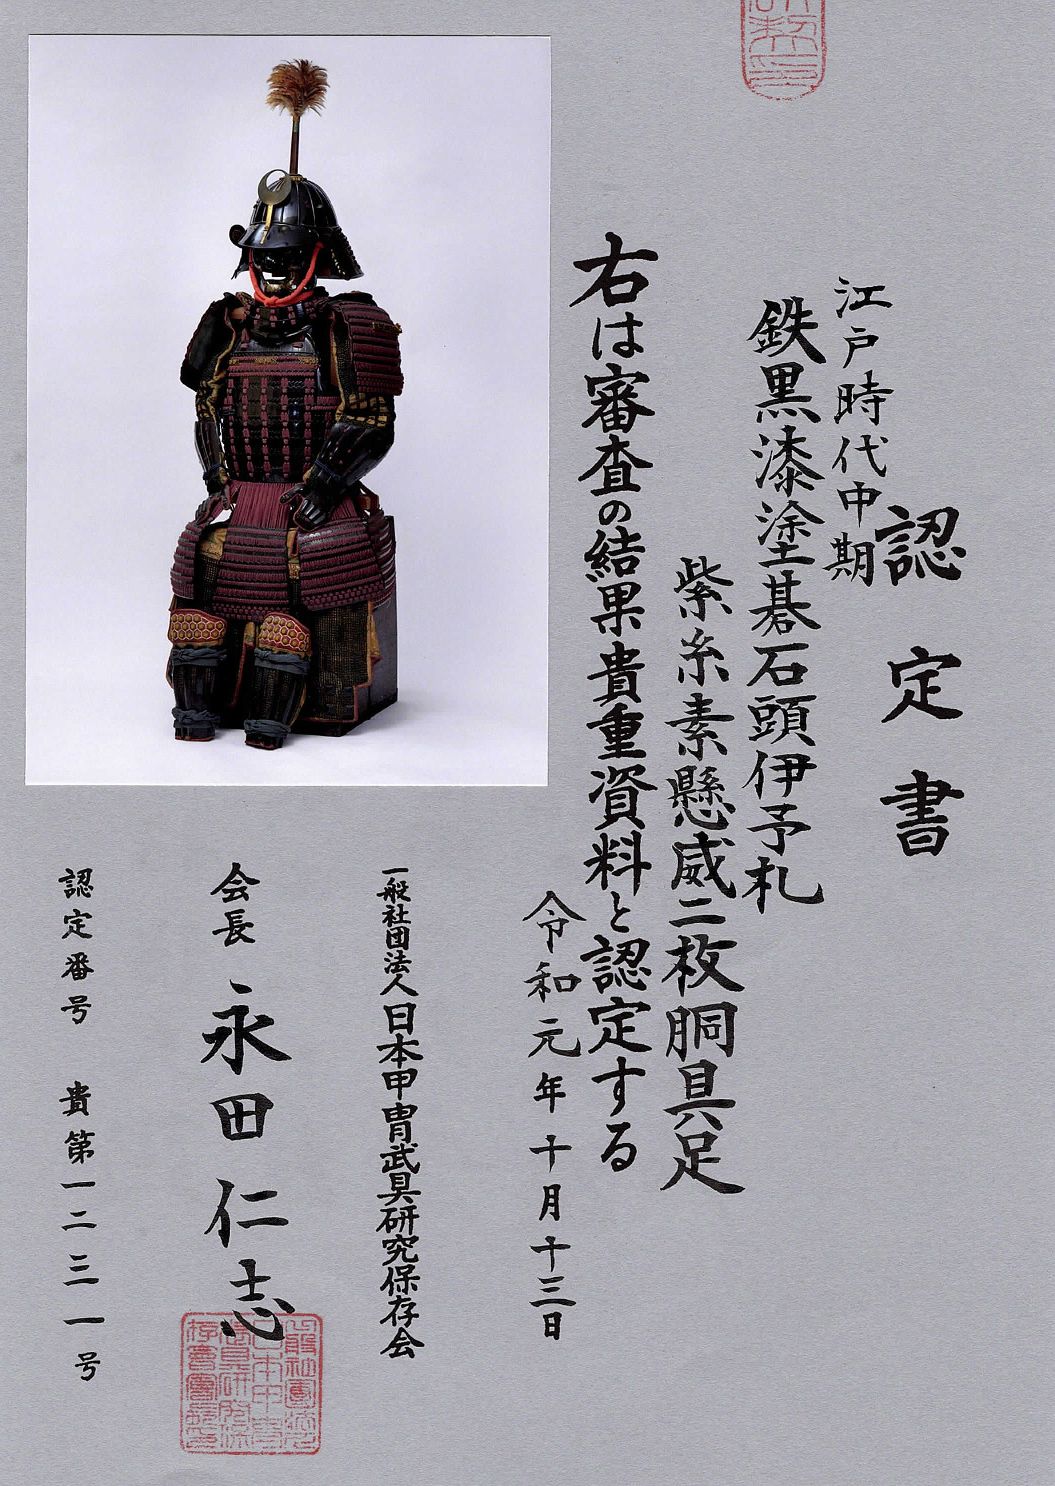 認定書
江戸時代中期
鉄黒漆塗碁石頭伊予札
紫糸素懸威二枚胴具足
右は審査の結果貴重資料と認定する
令和元年十月十三日
一般社団法人日本甲冑武具研究保存会
会長 永田仁志
認定番号 貴第一二三一号